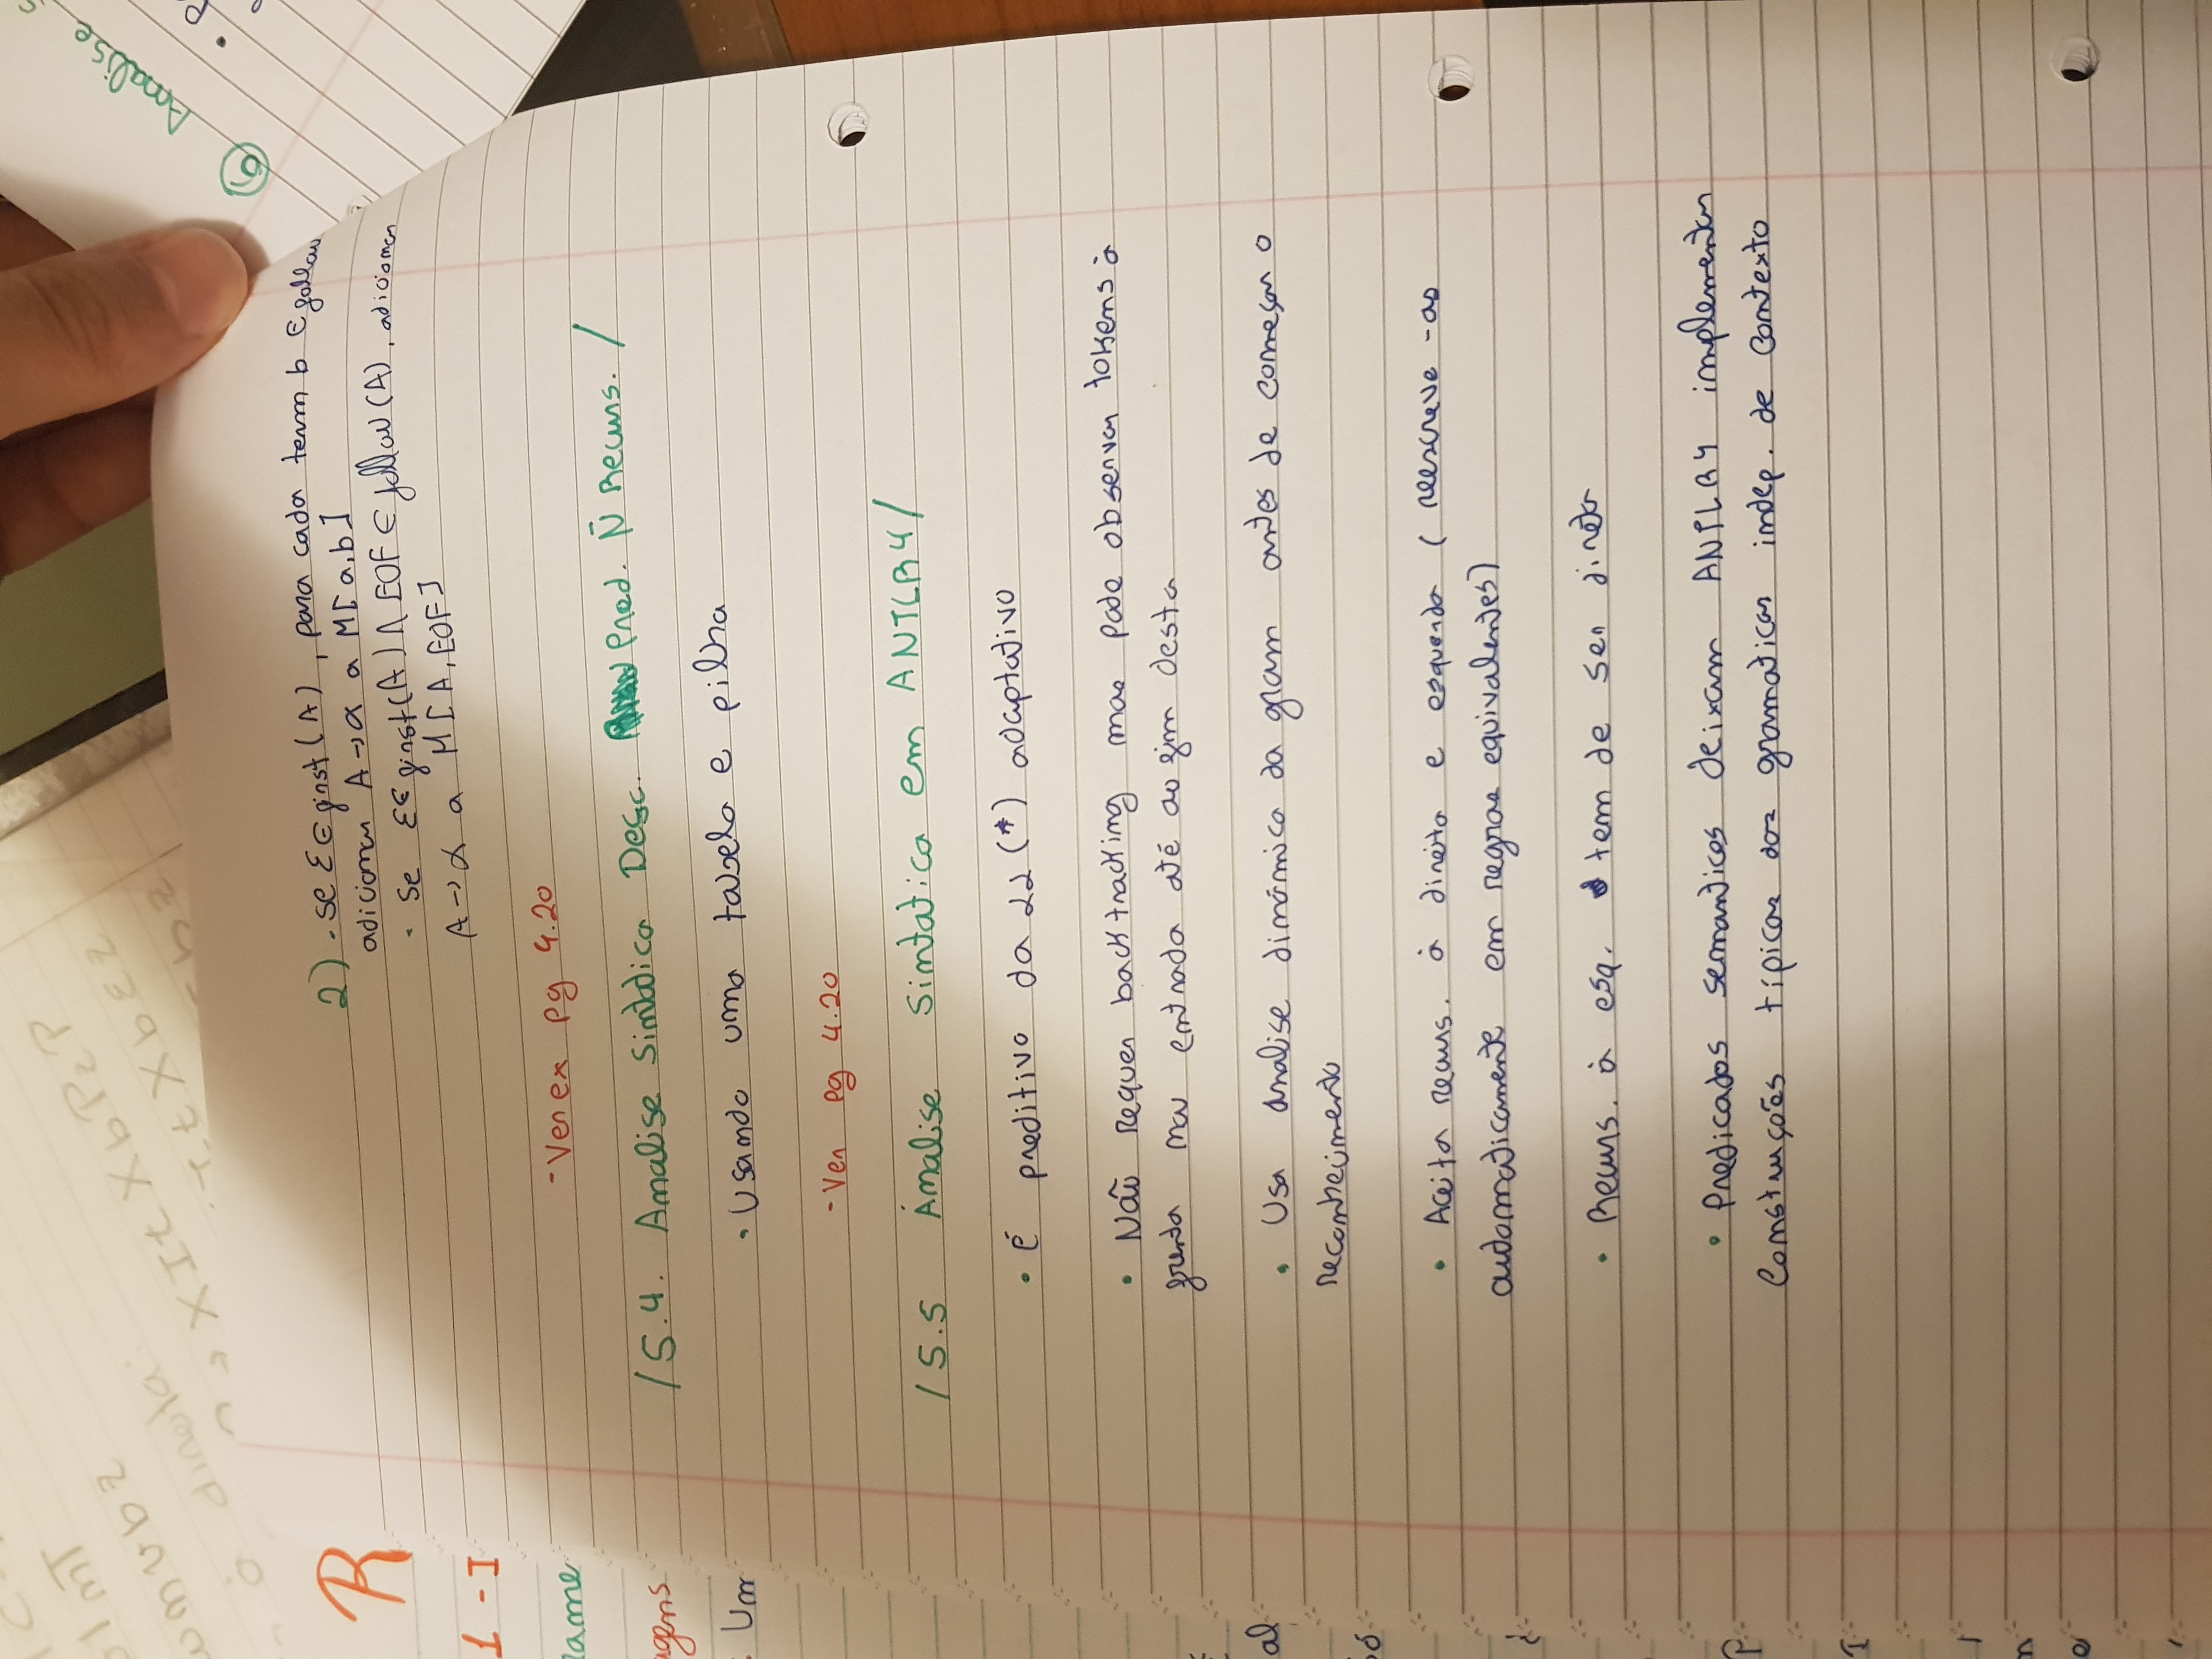 2) - se ε ∈ first(A), para cada term b ∈ follow
adicionar A → α a M[a,b]
• se ε ∈ first(A) ∧ EOF ∈ follow(A), adicionar
A → α a M[A,EOF]
- Ver ex pg 4.20
/5.4. Analise Sintática Desc. Pred. Ñ Recurs./
• Usando uma tabela e pilha
- Ver pg 4.20
/5.5 Analise Sintatica em ANTLR4/
• é preditivo da LL(*) adaptativo
• Não requer backtracking mas pode observar tokens à
frente na entrada até ao fim desta
• Usa analise dinâmica da gram antes de começar o
reconhecimento
• Aceita recurs. à direita e esquerda (reescreve-as
automaticamente em regras equivalentes)
• Recurs. à esq. tem de ser direta
• Predicados semanticos deixam ANTLR4 implementar
construções típicas das gramaticas indep. de contexto
R
1 - I
rame
agens
: Um
al
só
à direita:
→ XIt XbPzP
It XbEz
⑥ Analise